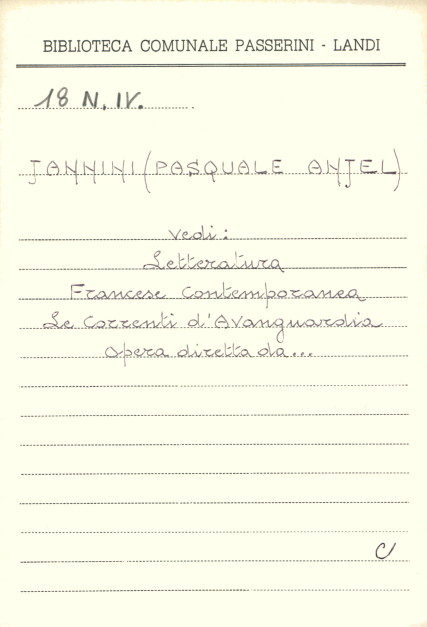 BIBLIOTECA COMUNALE PASSERINI - LANDI
18 N. IV.
JANNINI (PASQUALE ANJEL)
vedi:
Letteratura
Francese Contemporanea
Le Correnti d'Avanguardia
Opera diretta da...
C